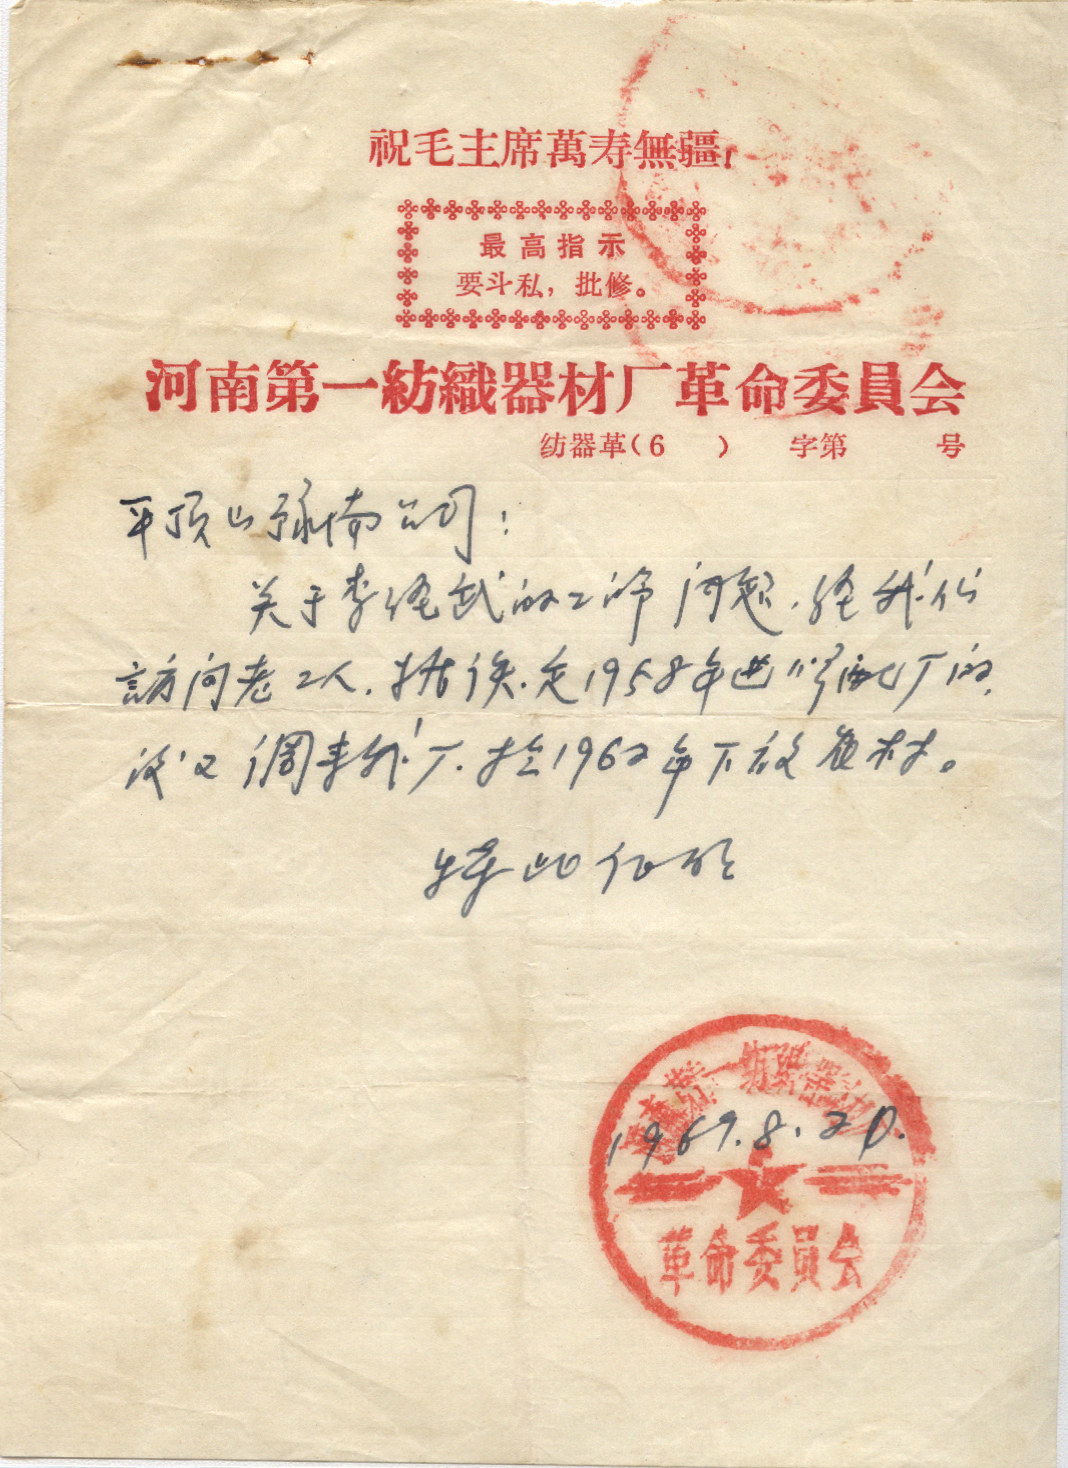 祝毛主席萬寿無疆！
最高指示
要斗私，批修。
河南第一紡織器材厂革命委員会
纺器革（6　）　字第　　号
平顶山公司：
关于李经武的工龄问题，经我们
訪问老工人，据谈，是1958年进厂的，
没又调来我厂，于1962年下放农村。
特此证明
1969.8.20.
河南第一纺织器材厂
革命委員会